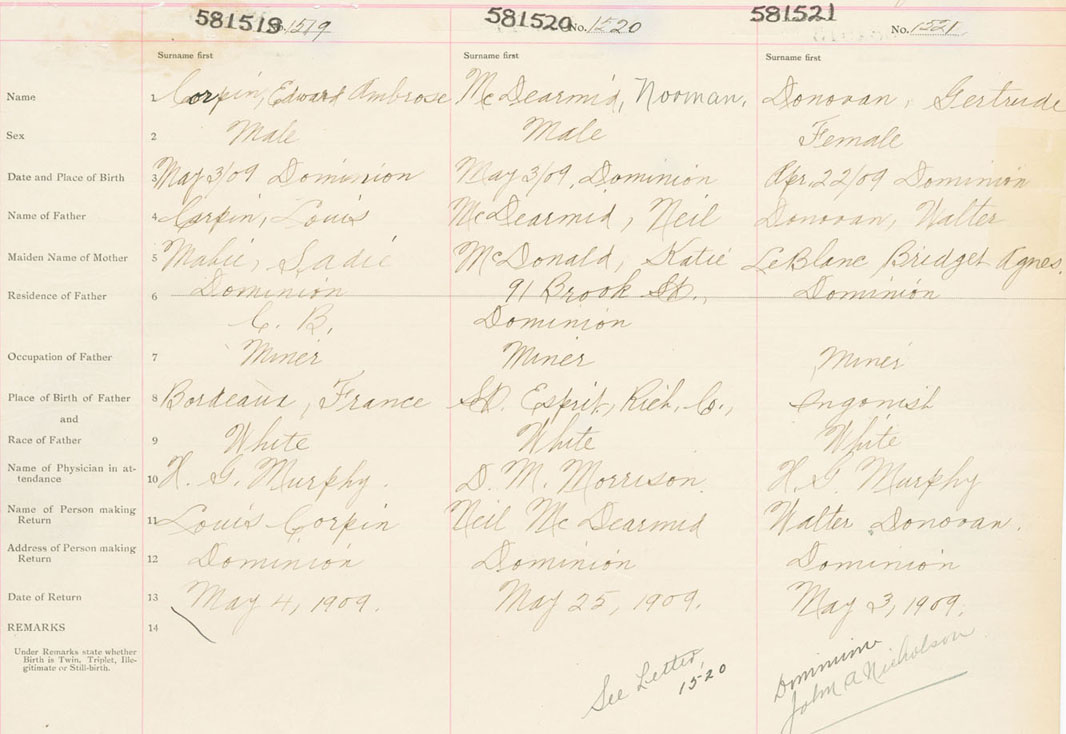 581519 No. 1519 581520 No. 1520 581521 No. 1521
Surname first Surname first Surname first
Name 1 Corpin, Edward Ambrose McDearmid, Norman, Donovan, Gertrude
Sex 2 Male Male Female
Date and Place of Birth 3 May 3/09 Dominion May 3/09, Dominion Apr. 22/09 Dominion
Name of Father 4 Corpin, Louis McDearmid, Neil Donovan, Walter
Maiden Name of Mother 5 Mabie, Sadie McDonald, Katie LeBlanc Bridget Agnes.
Residence of Father 6 Dominion 91 Brook St., Dominion
C. B. Dominion
Occupation of Father 7 Miner Miner Miner
Place of Birth of Father 8 Bordeaux, France St. Esprit, Rich. Co., Ingonish
and
Race of Father 9 White White White
Name of Physician in at-
tendance 10 H. G. Murphy. D. M. Morrison. H. G. Murphy
Name of Person making
Return 11 Louis Corpin Neil McDearmid Walter Donovan.
Address of Person making
Return 12 Dominion Dominion Dominion
Date of Return 13 May 4, 1909. May 25, 1909. May 3, 1909.
REMARKS 14
Under Remarks state whether
Birth is Twin, Triplet, Ille-
gitimate or Still-birth.
See Letter,
1520
Dominion
John A Nicholson